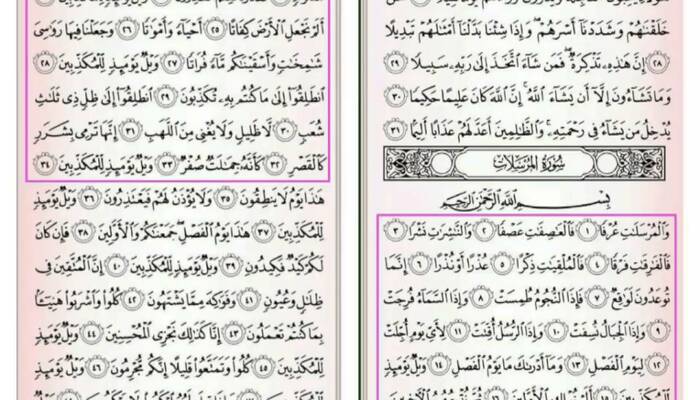 خَلَقْنَٰهُمْ وَشَدَدْنَآ أَسْرَهُمْ ۖ وَإِذَا شِئْنَا بَدَّلْنَآ أَمْثَٰلَهُمْ تَبْدِيلًا
٢٨ إِنَّ هَٰذِهِۦ تَذْكِرَةٌ ۖ فَمَن شَآءَ ٱتَّخَذَ إِلَىٰ رَبِّهِۦ سَبِيلًا ٢٩
وَمَا تَشَآءُونَ إِلَّآ أَن يَشَآءَ ٱللَّهُ ۚ إِنَّ ٱللَّهَ كَانَ عَلِيمًا حَكِيمًا ٣٠
يُدْخِلُ مَن يَشَآءُ فِى رَحْمَتِهِۦ ۚ وَٱلظَّٰلِمِينَ أَعَدَّ لَهُمْ عَذَابًا أَلِيمًۢا ٣١
سُورَةُ المُرْسَلَات
بِسْمِ ٱللَّهِ ٱلرَّحْمَٰنِ ٱلرَّحِيمِ
وَٱلْمُرْسَلَٰتِ عُرْفًا ١ فَٱلْعَٰصِفَٰتِ عَصْفًا ٢ وَٱلنَّٰشِرَٰتِ نَشْرًا ٣
فَٱلْفَٰرِقَٰتِ فَرْقًا ٤ فَٱلْمُلْقِيَٰتِ ذِكْرًا ٥ عُذْرًا أَوْ نُذْرًا ٦ إِنَّمَا
تُوعَدُونَ لَوَٰقِعٌ ٧ فَإِذَا ٱلنُّجُومُ طُمِسَتْ ٨ وَإِذَا ٱلسَّمَآءُ فُرِجَتْ
٩ وَإِذَا ٱلْجِبَالُ نُسِفَتْ ١٠ وَإِذَا ٱلرُّسُلُ أُقِّتَتْ ١١ لِأَىِّ يَوْمٍ أُجِّلَتْ
١٢ لِيَوْمِ ٱلْفَصْلِ ١٣ وَمَآ أَدْرَىٰكَ مَا يَوْمُ ٱلْفَصْلِ ١٤ وَيْلٌ يَوْمَئِذٍ
لِّلْمُكَذِّبِينَ ١٥ أَلَمْ نُهْلِكِ ٱلْأَوَّلِينَ ١٦ ثُمَّ نُتْبِعُهُمُ ٱلْـَٔاخِرِينَ
أَلَمْ نَجْعَلِ ٱلْأَرْضَ كِفَاتًا ٢٥ أَحْيَآءً وَأَمْوَٰتًا ٢٦ وَجَعَلْنَا فِيهَا رَوَٰسِىَ
شَٰمِخَٰتٍ وَأَسْقَيْنَٰكُم مَّآءً فُرَاتًا ٢٧ وَيْلٌ يَوْمَئِذٍ لِّلْمُكَذِّبِينَ ٢٨
ٱنطَلِقُوٓا۟ إِلَىٰ مَا كُنتُم بِهِۦ تُكَذِّبُونَ ٢٩ ٱنطَلِقُوٓا۟ إِلَىٰ ظِلٍّ ذِى ثَلَٰثِ
شُعَبٍ ٣٠ لَّا ظَلِيلٍ وَلَا يُغْنِى مِنَ ٱللَّهَبِ ٣١ إِنَّهَا تَرْمِى بِشَرَرٍ
كَٱلْقَصْرِ ٣٢ كَأَنَّهُۥ جِمَٰلَتٌ صُفْرٌ ٣٣ وَيْلٌ يَوْمَئِذٍ لِّلْمُكَذِّبِينَ ٣٤
هَٰذَا يَوْمُ لَا يَنطِقُونَ ٣٥ وَلَا يُؤْذَنُ لَهُمْ فَيَعْتَذِرُونَ ٣٦ وَيْلٌ يَوْمَئِذٍ
لِّلْمُكَذِّبِينَ ٣٧ هَٰذَا يَوْمُ ٱلْفَصْلِ ۖ جَمَعْنَٰكُمْ وَٱلْأَوَّلِينَ ٣٨ فَإِن كَانَ
لَكُمْ كَيْدٌ فَكِيدُونِ ٣٩ وَيْلٌ يَوْمَئِذٍ لِّلْمُكَذِّبِينَ ٤٠ إِنَّ ٱلْمُتَّقِينَ فِى
ظِلَٰلٍ وَعُيُونٍ ٤١ وَفَوَٰكِهَ مِمَّا يَشْتَهُونَ ٤٢ كُلُوا۟ وَٱشْرَبُوا۟ هَنِيٓـًٔۢا
بِمَا كُنتُمْ تَعْمَلُونَ ٤٣ إِنَّا كَذَٰلِكَ نَجْزِى ٱلْمُحْسِنِينَ ٤٤ وَيْلٌ يَوْمَئِذٍ
لِّلْمُكَذِّبِينَ ٤٥ كُلُوا۟ وَتَمَتَّعُوا۟ قَلِيلًا إِنَّكُم مُّجْرِمُونَ ٤٦ وَيْلٌ يَوْمَئِذٍ